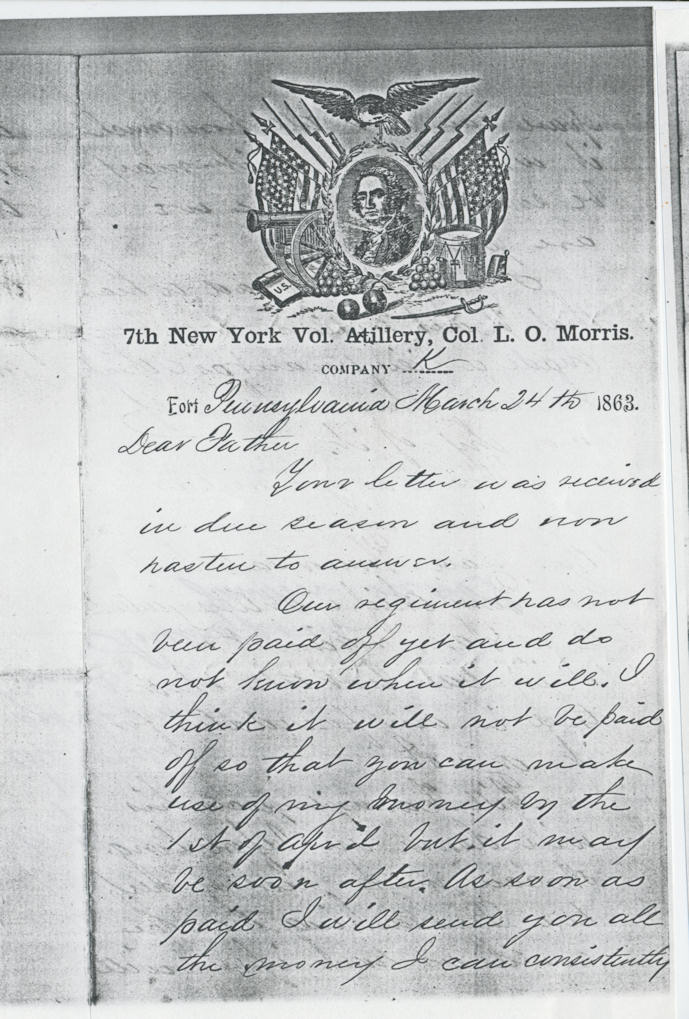 U.S.
7th New York Vol. Atillery, Col. L. O. Morris.
COMPANY K
Fort Pennsylvania March 24th 1863.
Dear Father
Your letter was received
in due season and now
hasten to answer.
Our regiment has not
been paid off yet and do
not know when it will. I
think it will not be paid
off so that you can make
use of my money by the
1st of april but it may
be soon after. As soon as
paid I will send you all
the money I can consistently